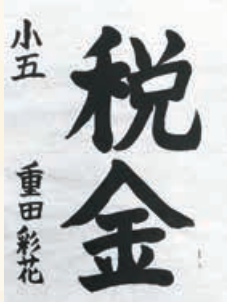 税金
小五
重田彩花